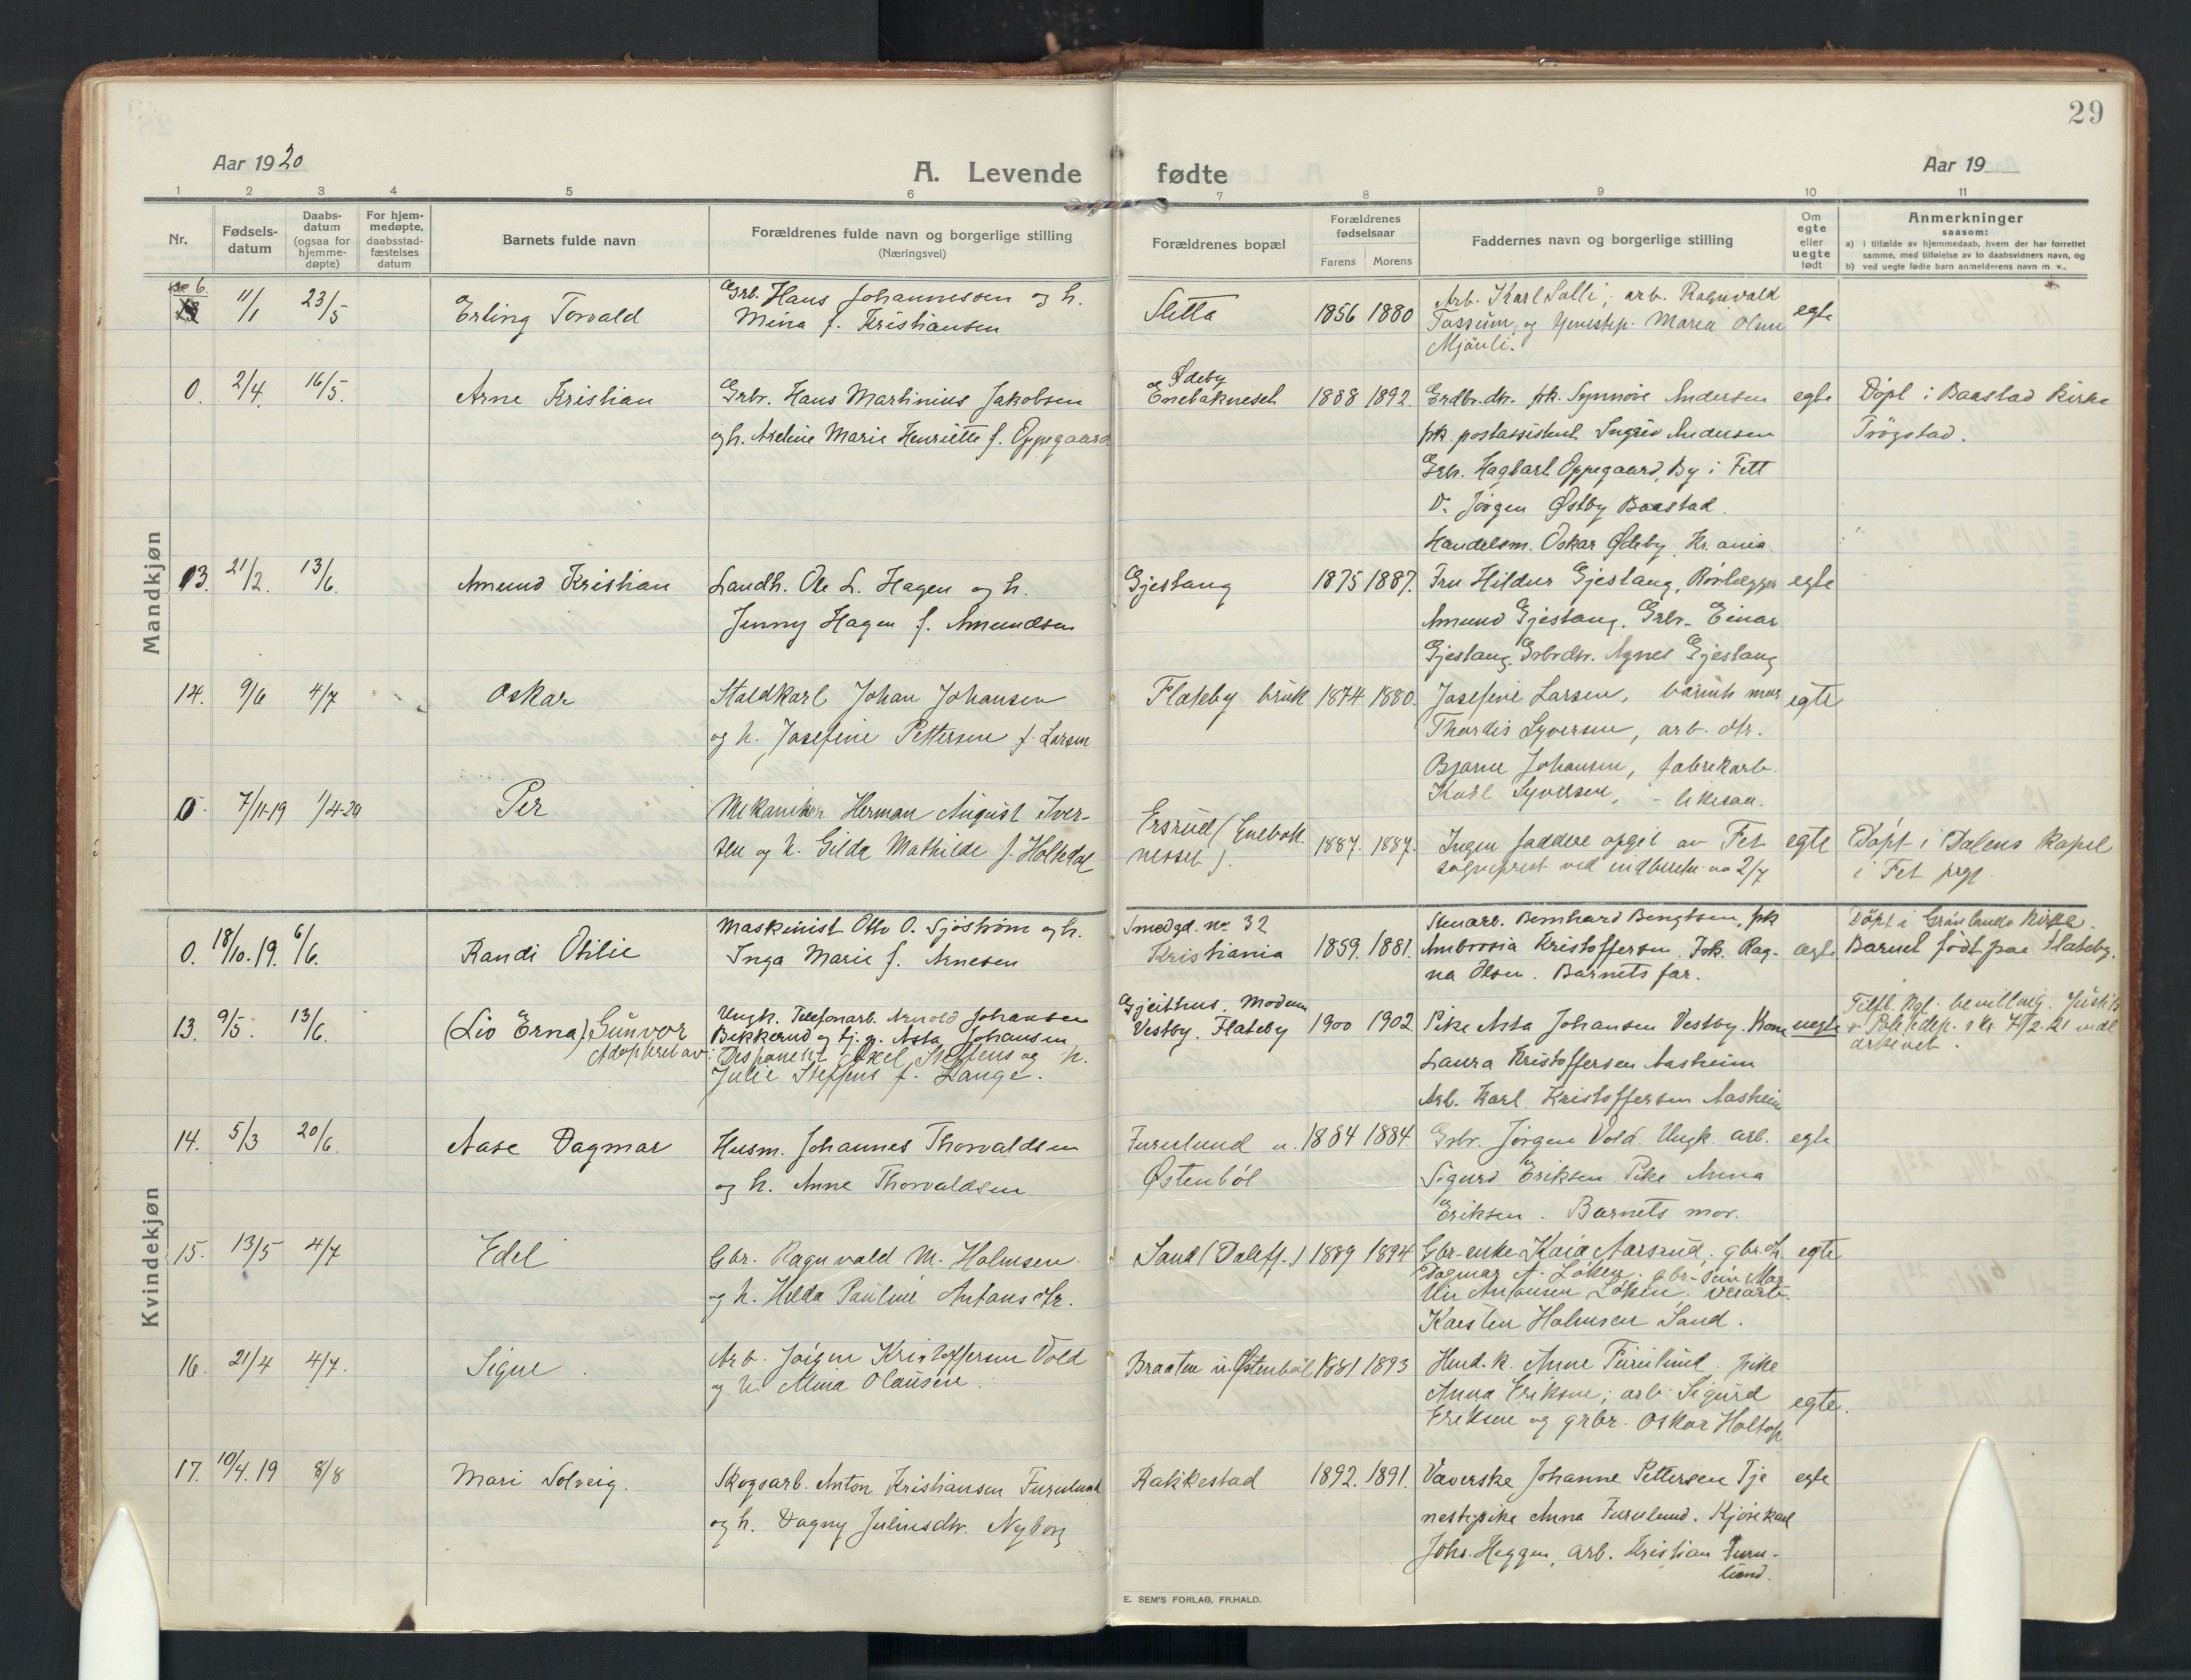 29
Aar 1920
A. Levende fødte
Aar 19
1 2 3 4 5 6 7 8 9 10 11
Nr.
Fødsels-
datum
Daabs-
datum
(ogsaa for
hjemme-
døpte)
For hjem-
medøpte,
daabsstad-
fæstelses
datum
Barnets fulde navn
Forældrenes fulde navn og borgerlige stilling
(Næringsvei)
Forældrenes bopæl
Forældrenes
fødselsaar
Farens Morens
Faddernes navn og borgerlige stilling
Om
egte
eller
uegte
født
Anmerkninger
saasom:
a) i tilfælde av hjemmedaab, hvem der har forrettet
samme, med tilføielse av to daabsvidners navn, og
b) ved uegte fødte barn anmelderens navn m. v..
Mandkjøn
11/1 23/5 Erling Torvald
Grb. Hans Johannessen og h.
Mina f. Kristiansen
Sletta 1856 1880
Arb. Karl Solli; arb. Ragnvald
Tossum, og Maria Olsen
Mjönli.
egte
0. 2/4. 16/5. Arne Kristian
Grbr. Hans Martinius Jakobsen
og h. Aseline Marie Henriette f. Oppegaard
Ødeby
Enebaknesset 1888 1892.
Grdbr.dtr. frk. Synnöve Andersen
frk. postassistent Ingrid Andersen
Grbr. Hagbart Oppegaard, By i Fett
D. Jörgen Østby Baastad.
Handelsm. Oskar Ødeby, Kr.ania.
egte
Döpt i Baastad Kirke
Trögstad.
13. 21/2. 13/6. Amund Kristian
Landh. Ole L. Hagen og h.
Jenny Hagen f. Amundsen
Gjestang 1875 1887.
Fru Hildur Gjestang, Rörlægger
Amund Gjestang. Grbr. Einar
Gjestang. Grbrdtr. Agnes Gjestang
egte
14. 9/6 4/7 Oskar
Staldkarl Johan Johansen
og h. Josefine Pettersen f. Larsen
Flateby bruk 1874 1880.
Josefine Larsen, barnets mor
Thordis Syversen, arb. dtr.
Bjarne Johansen, fabrikarb.
Karl Syversen, - likesaa.
egte
0. 7/11-19 1/4-20 Per
Mekaniker Herman August Iver-
sen og h. Gilda Mathilde f. Holtedal
Ersrud (Enebak-
nesset). 1887. 1887.
Ingen faddere opgit av Fet
sogneprest ved indberetn. av 2/7
egte
Døpt i Dalens kapel
i Fet prgj.
Kvindekjøn
0. 18/10.19. 6/6. Randi Otilie
Maskinist Otto O. Sjöström og h.
Inga Marie f. Arnesen
Smedgd. nr. 32
Kristiania 1859. 1881.
Stenarb. Bernhard Bengtsen, frk
Ambrosia Kristoffersen. Frk. Rag-
na Olsen. Barnets far.
egte
Döpt i Grönlands Kirke.
Barnet födt paa Flateby.
13. 9/5. 13/6. (Liv Erna) Gunvor
Adoptert av:
Ungk. Telefonarb. Arnold Johansen
Bekkerud og tj. p. Asta Johansen
Disponent Axel Steffens og h.
Julie Steffens f. Lange.
Gjeithus. Modum
Vestby. Flateby 1900 1902
Pike Asta Johansen Vestby. Kone
Laura Kristoffersen Aasheim
Arb. Karl Kristoffersen Aasheim
uegte
arkivet.
14. 5/3 20/6. Aase Dagmar
Husm. Johannes Thorvaldsen
og h. Anne Thorvaldsen
Furulund u. 1884 1884.
Østenböl
Grbr. Jörgen Vold. Ungk. arb.
Sigurd Eriksen Pike Anna
Eriksen. Barnets mor.
egte
15. 13/5 4/7 Edel
Gbr. Ragnvald M. Holmsen
og h. Hilda Pauline Antonsdtr.
Sand (Dalefj.) 1889 1894
Gbr-enke Kaia Aarsrud. gbr. dtr.
Dagmar A. Löken. gbr-sön Mar-
tin Antonsen Löken. veiarb.
Karsten Holmsen Sand.
egte
16. 21/4 4/7. Signe.
Arb. Jörgen Kristoffersen Vold
og h. Mina Olausen.
Braaten u. Østenböl 1881 1893
Husm. k. Anne Furulund. pike
Anna Eriksen; arb. Sigurd
Eriksen og grbr. Oskar Holtop
egte.
17. 10/4.19 8/8 Mari Solveig.
Skogsarb. Anton Kristiansen Furulund
og h. Dagny Juliusdtr. Nyborg
Rakkestad 1892. 1891.
Væverske Johanne Pettersen Tje
nestepike Anna Furulund. Kjörekarl
Johs. Heggen, arb. Kristian Furu-
lund.
egte
E. SEM'S FORLAG, FR.HALD.